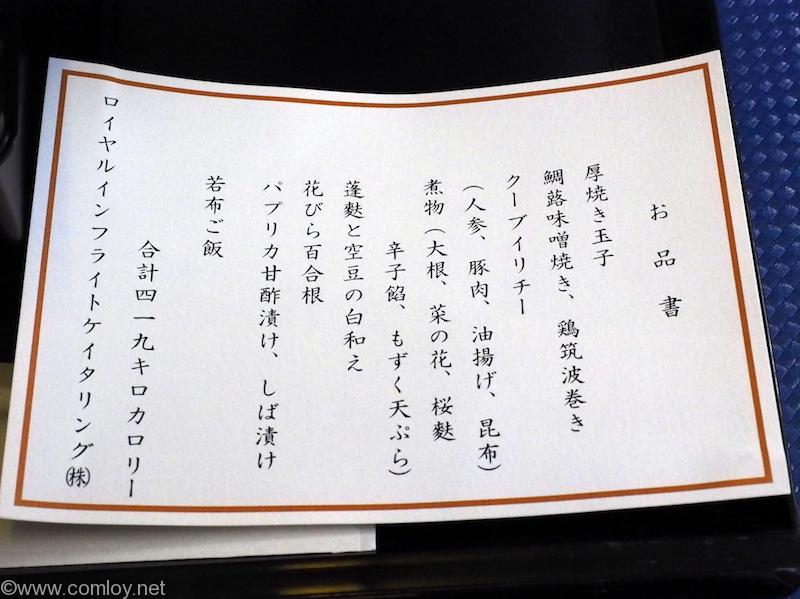 お品書
厚焼き玉子
鯛蕗味噌焼き、鶏筑波巻き
クーブイリチー
(人参、豚肉、油揚げ、昆布)
煮物(大根、菜の花、桜麩
辛子餡、もずく天ぷら)
蓬麩と空豆の白和え
花びら百合根
パプリカ甘酢漬け、しば漬け
若布ご飯
合計四一九キロカロリー
ロイヤルインフライトケイタリング㈱
©www.comloy.net